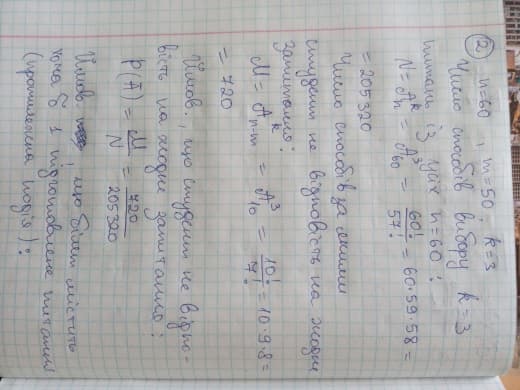 ② n=60, m=50; k=3
Число способів вибору k=3
питань із усіх n=60:
N = Aₙᵏ = A₆₀³ = 60!/57! = 60·59·58 =
= 205320
Число способів за якими
студент не відповість на жодне
запитання:
M = Aₙ₋ₘᵏ = A₁₀³ = 10!/7! = 10·9·8 =
= 720
Ймов., що студент не відпо-
вість на жодне запитання:
P(Ā) = M/N = 720/205320
Ймов, що білет містить
хоча б 1 підготовлене питання
(протилежна подія):